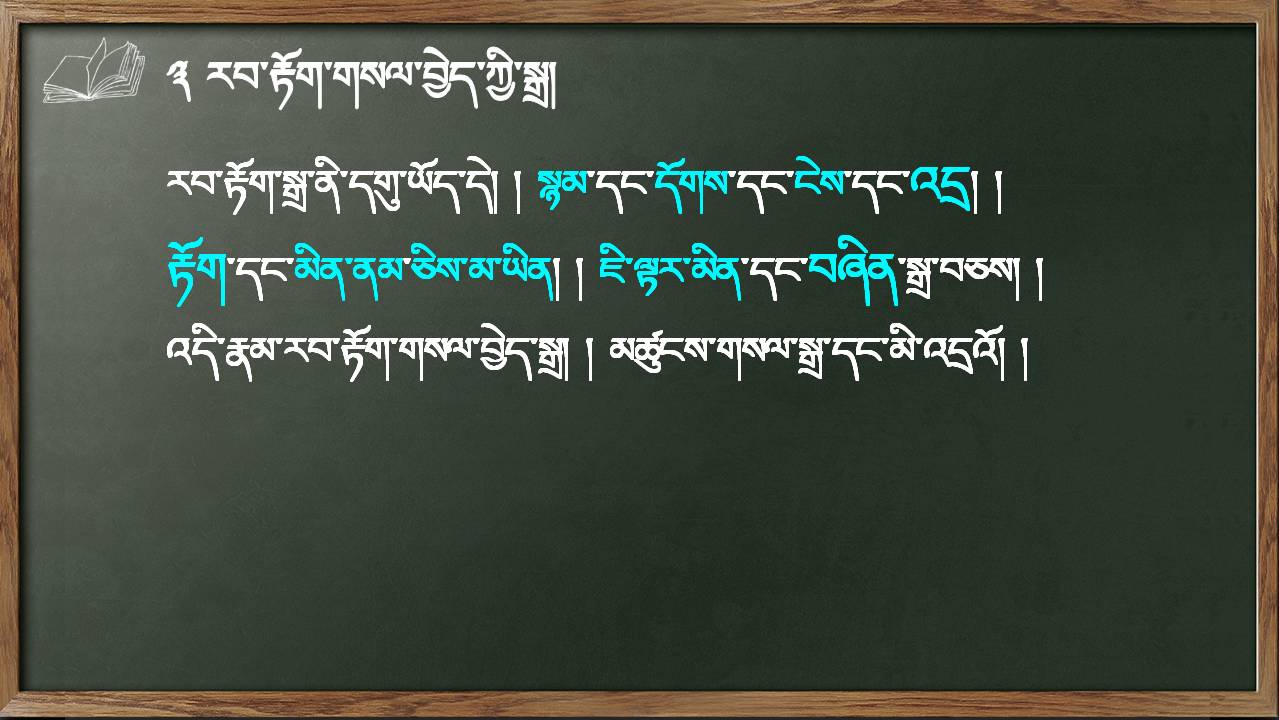 ༣ རབ་རྟོག་གསལ་བྱེད་ཀྱི་སྒྲ།
རབ་རྟོག་སྒྲ་ནི་དགུ་ཡོད་དེ། ། སྙམ་དང་དོགས་དང་ངེས་དང་འདྲ། །
རྟོག་དང་མིན་ནམ་ཅིས་མ་ཡིན། ། ཇི་ལྟར་མིན་དང་བཞིན་སྒྲ་བཅས། །
འདི་རྣམ་རབ་རྟོག་གསལ་བྱེད་སྒྲ། ། མཚུངས་གསལ་སྒྲ་དང་མི་འདྲའོ། །